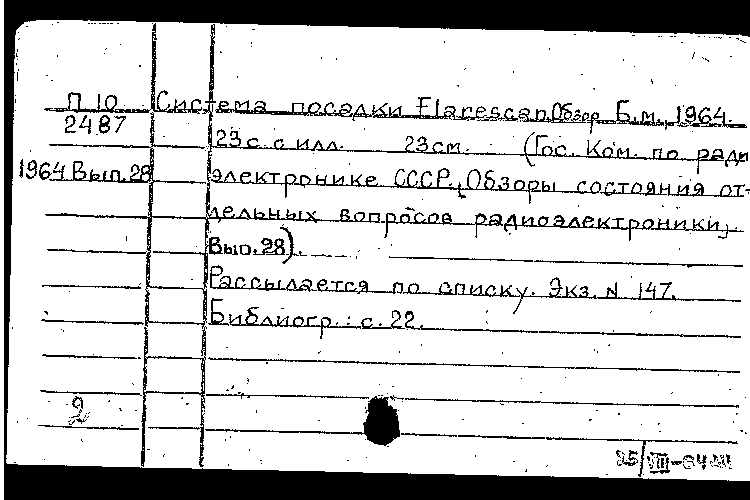 П 10 Система посадки Flarescan. Обзор Б.м., 1964.
2487
23с. с илл. 23см. (Гос. Ком. по ради
1964 Вып. 28 электронике СССР. Обзоры состояния от-
дельных вопросов радиоэлектроники;
Вып. 28).
Рассылается по списку. Экз. N 147.
Библиогр.: с. 22.
2
25/VIII-64